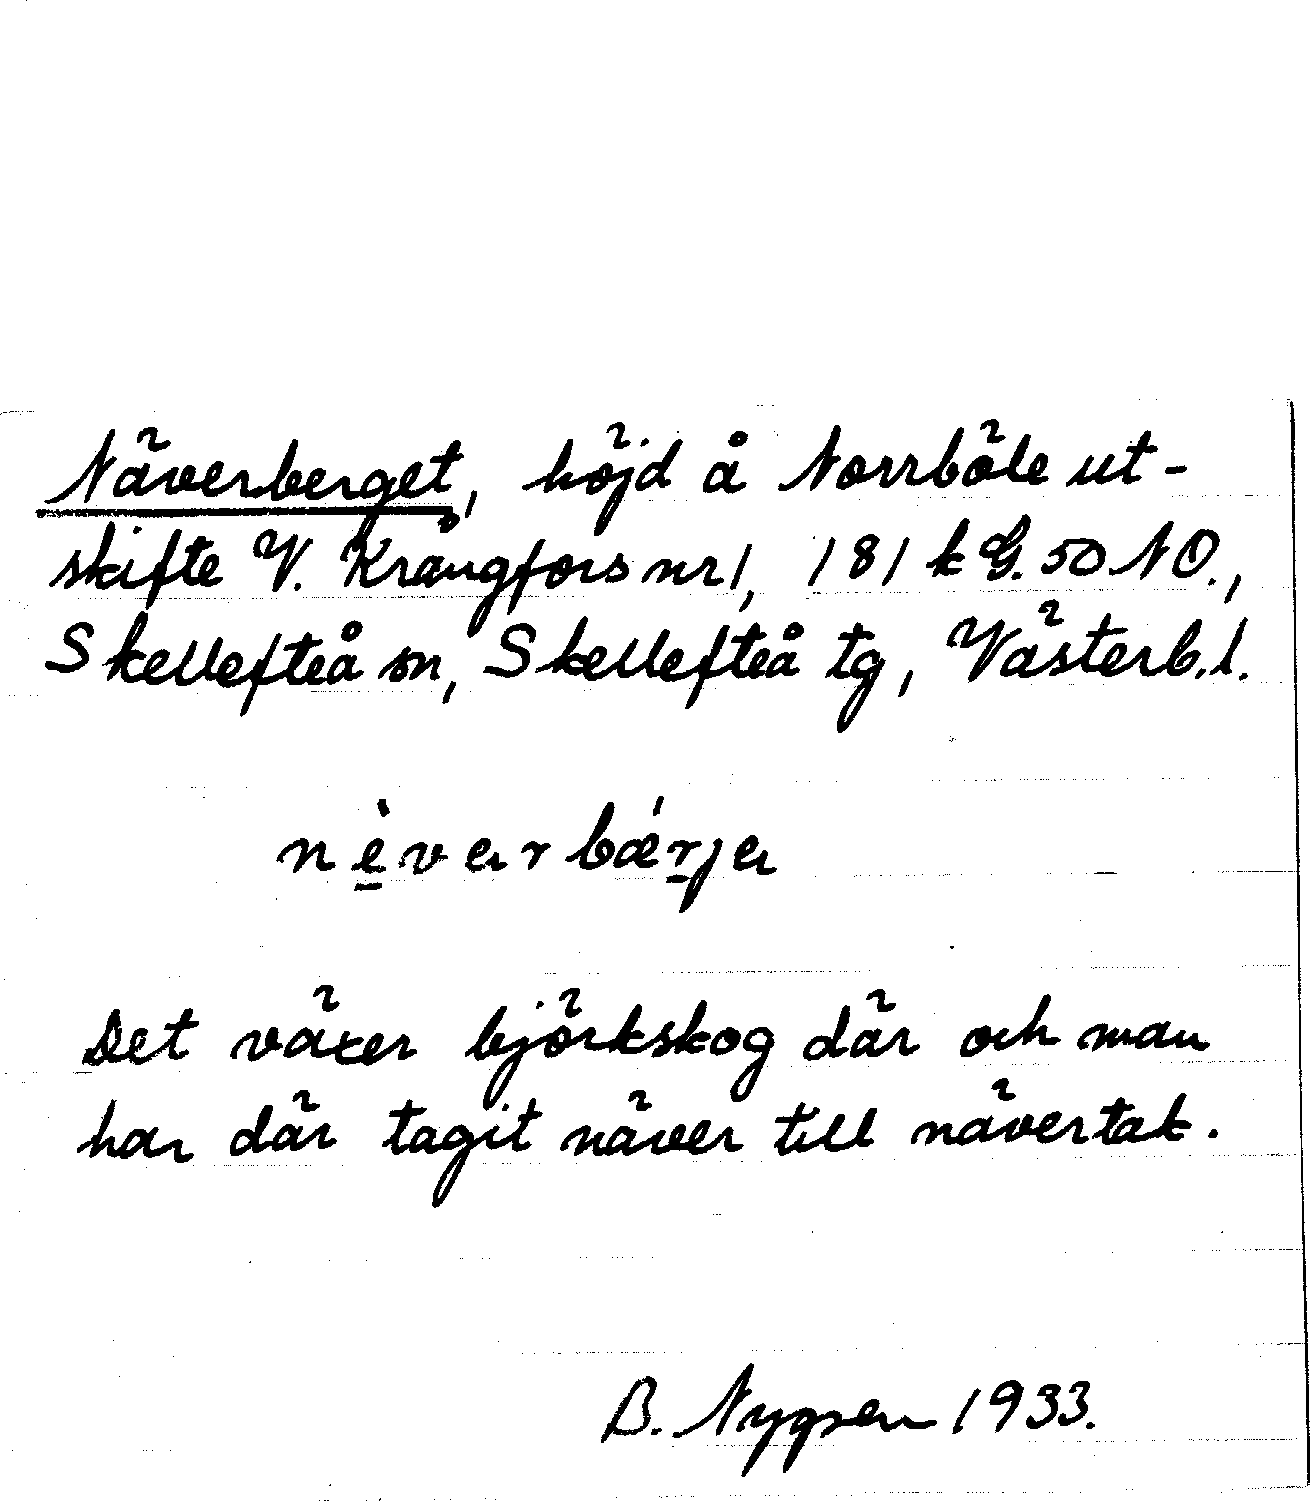 Näverberget, höjd å Norrböle ut-
skifte V. Krångfors nr 1, 181 k G. 50 NO.,
Skellefteå sn, Skellefteå tg, Västerb.l.
nèvarbǽrja
Det växer björkskog där och man
har där tagit näver till nävertak.
B. Nygren 1933.